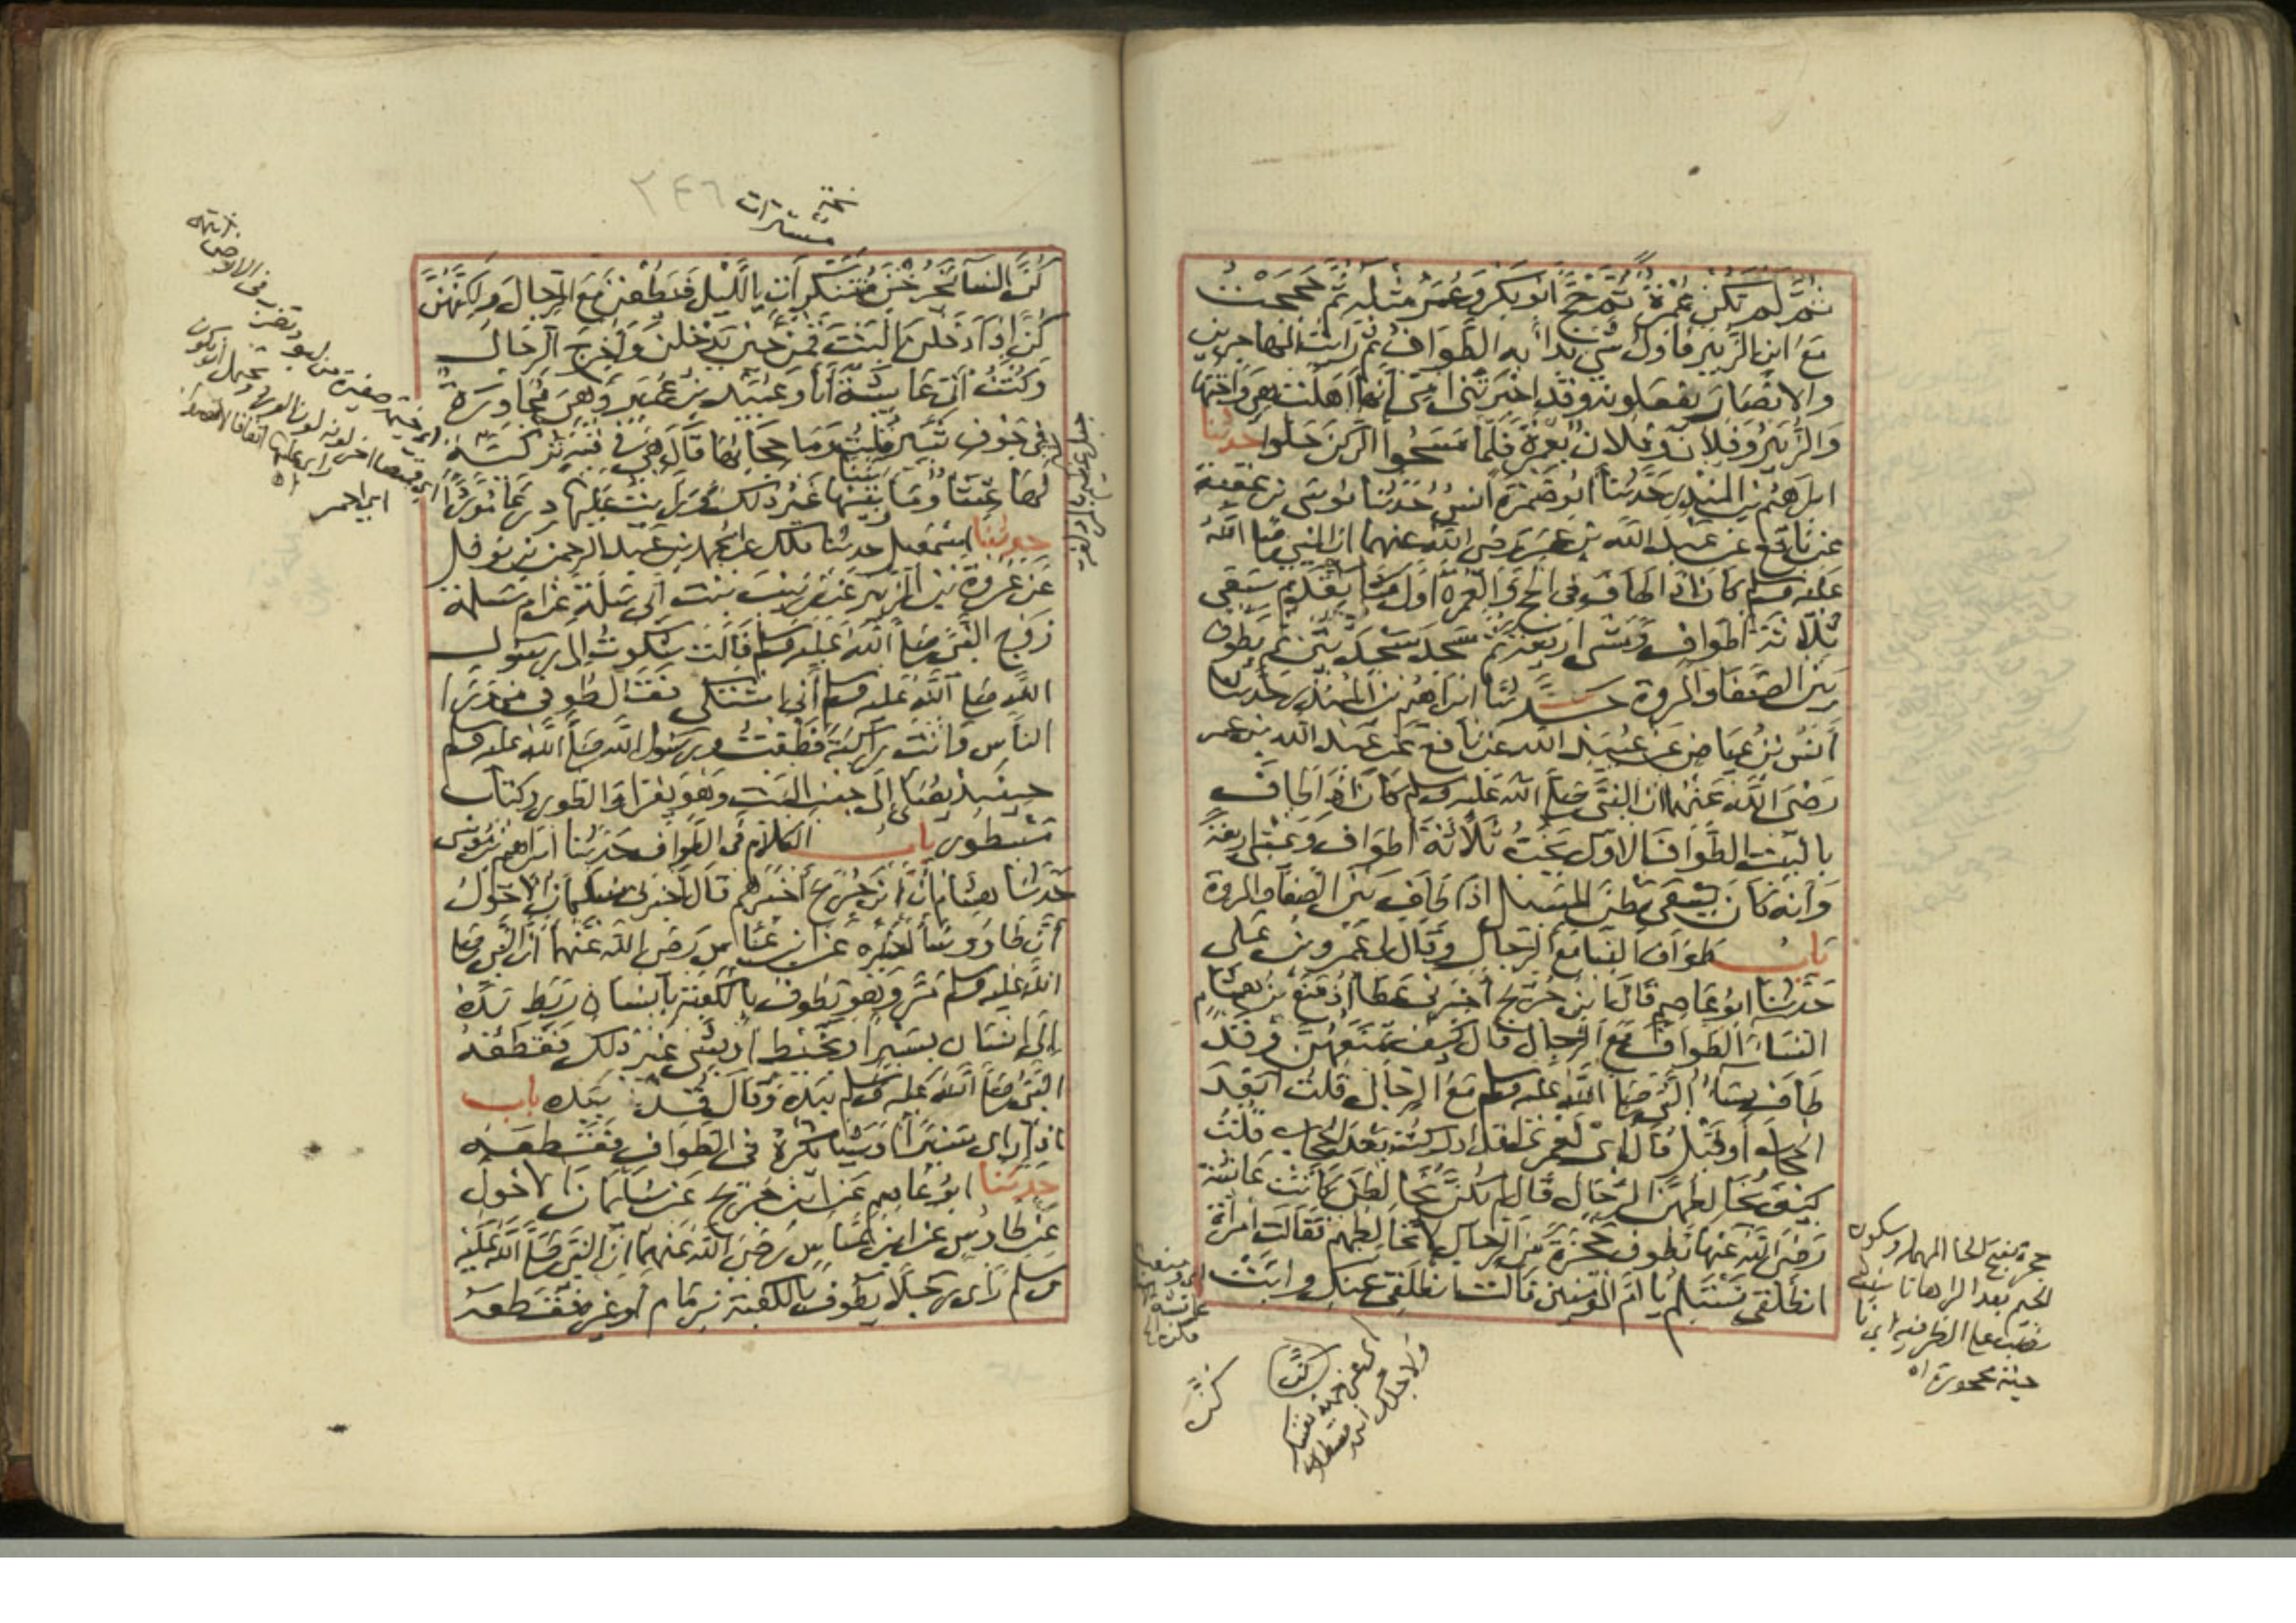 ثم لم تكن عمرة ثم حج ابو بكر وعمر مثله ثم حججت
مع ابن الزبير فاول شي بدا به الطواف ثم رايت المهاجرين
والانصار يفعلونه وقد اخبرتني امي انها اهلت هي واختها
والزبير وفلان وفلان بعمرة فلما مسحوا الركن حلوا حدثنا
ابراهيم بن المنذر حدثنا ابو ضمرة انس حدثنا موسى بن عقبة
عن نافع عن عبد الله بن عمر رضي الله عنهما ان النبي صلى الله
عليه وسلم كان اذا طاف في الحج والعمرة اول ما يقدم سعى
ثلاثة اطواف ومشى اربعة ثم سجد سجدتين ثم يطوف
بين الصفا والمروة حدثنا ابراهيم بن المنذر حدثنا
أنس بن عياض عن عبيد الله عن نافع عن عبد الله بن عمر
رضي الله عنهما ان النبي صلى الله عليه وسلم كان اذا طاف
بالبيت الطواف الاول يخب ثلاثة اطواف ويمشي اربعة
وانه كان يسعى بطن المسيل اذا طاف بين الصفا والمروة
باب طواف النسا مع الرجال وقال لي عمرو بن علي
حدثنا ابو عاصم قال ابن جريج أخبرني عطا اذ منع بن هشام
النساء الطواف مع الرجال قال كيف تمنعهن وقد
طاف نساء النبي صلى الله عليه وسلم مع الرجال قلت ابعد
الحجاب او قبل قال اي لعمري لقد ادركته بعد الحجاب قلت
كيف يخالطهن الرجال قال لم يكن يخالطن كانت عائشة
رضي الله عنها تطوف حجرة من الرجال لا تخالطهم فقالت امرأة
انطلقي نستلم يا ام المؤمنين قالت انطلقي عنك وابت
حجرة بفتح الحا المهملة وسكون
الجيم بعد الرا هاتا
نصب على الظرفية اي نا
حية محجورة اه
كن
نخـ
متسترات
٢٤٦
كن النسا يخرجن متنكرات بالليل فيطفن مع الرجال ولكنهن
كن اذا دخلن البيت قمن حين يدخلن واخرج الرجال
وكنت آتي عايشة أنا وعبيد بن عمير وهي مجاورة
في جوف ثبير قلت وما حجابها قال هي في قبة تركية
لها غشا وما بيننا وبينها غير ذلك ورايت عليها درعا موردا
حدثنا اسمعيل حدثنا ملك عن محمد بن عبد الرحمن بن نوفل
عن عروة بن الزبير عن زينب بنت ابي سلمة عن ام سلمة
زوج النبي صلى الله عليه وسلم قالت شكوت الى رسول
الله صلى الله عليه وسلم أني اشتكي فقال طوفي من ورا
الناس وانت راكبة فطفت ورسول الله صلى الله عليه وسلم
حينيذ يصلي إلى جنب البيت وهو يقرا والطور وكتاب
مسطور باب الكلام في الطواف حدثنا ابراهيم بن موسى
حدثنا هشام ان ابن جريج أخبرهم قال اخبرني سليمان الاحول
أن طاووسا اخبره عن ابن عباس رضي الله عنهما أن النبي صلى
الله عليه وسلم مر وهو يطوف بالكعبة بانسان ربط يده
إلى انسان بسير أو بخيط او بشي غير ذلك فقطعه
النبي صلى الله عليه وسلم بيده وقال قد بيده باب
اذا رأى سيرا أو شيئا يكره في الطواف فقطعه
حدثنا ابو عاصم عن ابن جريج عن سليمان الاحول
عن طاوس عن ابن عباس رضي الله عنهما ان النبي صلى الله عليه
وسلم رأى رجلا يطوف بالكعبة بزمام أو غيره فقطعه
اي احمر